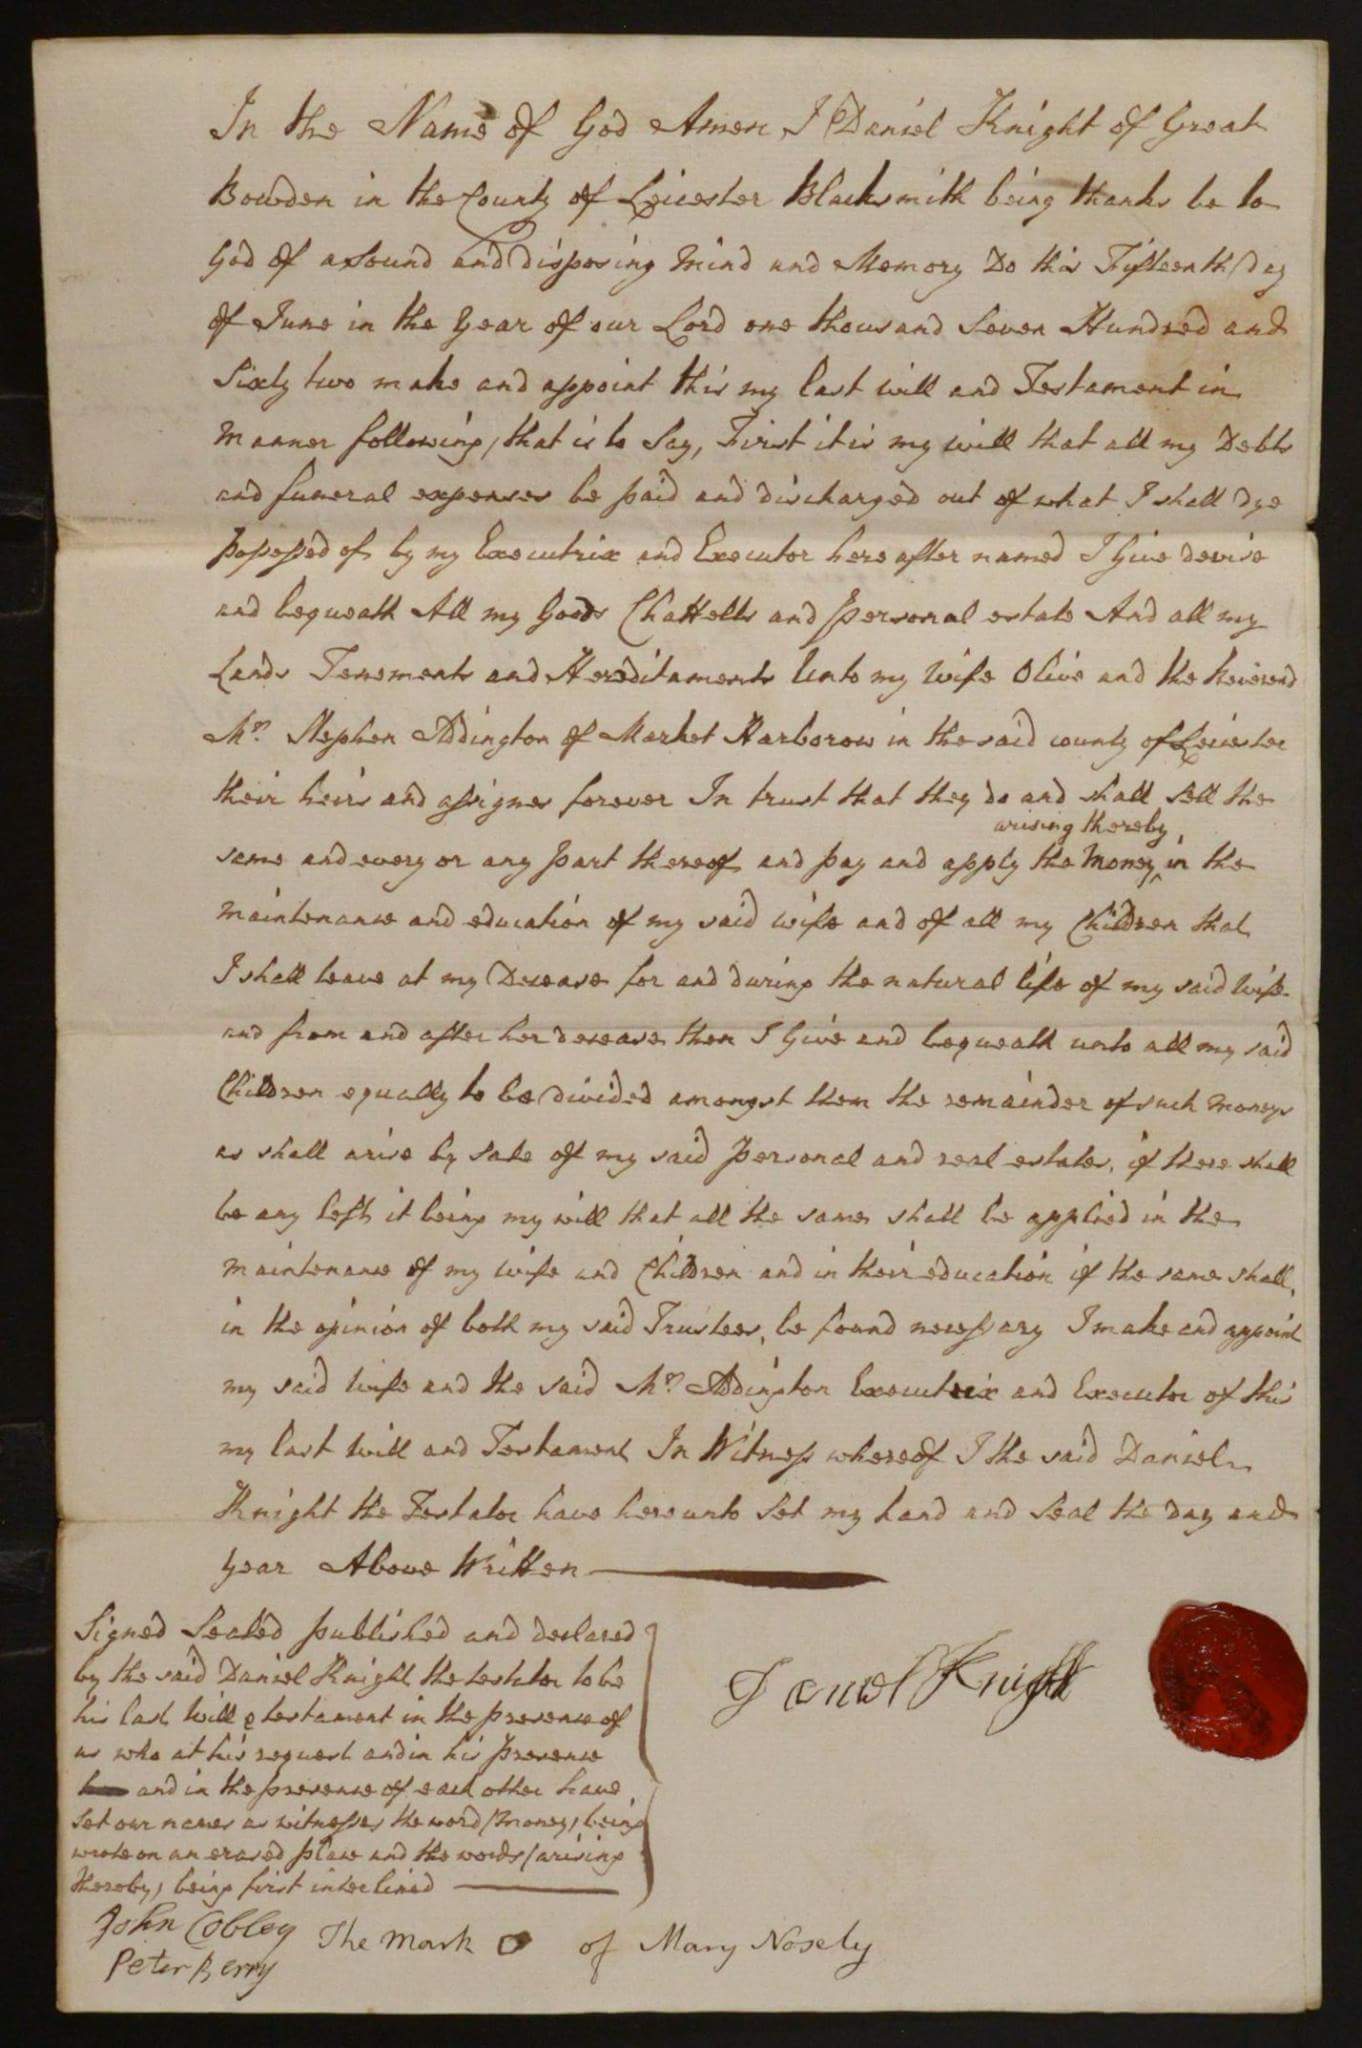 In the Name of God Amen I Daniel Knight of Great
Bowden in the County of Leicester Blacksmith being thanks be to
God of a sound and disposing Mind and Memory Do this Fifteenth Day
of June in the Year of our Lord one thousand Seven Hundred and
Sixty two make and appoint this my last will and Testament in
Manner following, that is to Say, First it is my will that all my Debts
and funeral expenses be paid and discharged out of what I shall dye
possessed of by my Executrix and Executor here after named I Give devise
and bequeath All my Goods Chattells and personal estate And all my
Lands Tenements and Hereditaments Unto my Wife Olive and the Reverend
Mr. Stephen Addington of Market Harborow in the said county of Leicester
their heirs and assignes forever In trust that they do and shall sell the
arising thereby
same and every or any part thereof and pay and apply the Money ^ in the
maintenance and education of my said wife and of all my Children that
I shall leave at my Decease for and during the natural life of my said Wife
and from and after her decease then I Give and bequeath unto all my said
Children equally to be divided amongst them the remainder of such moneys
as shall arise by sale of my said personal and real estates, if there shall
be any left it being my will that all the same shall be applied in the
maintenance of my wife and Children and in their education if the same shall,
in the opinion of both my said Trustees, be found necessary I make and appoint
my said Wife and the said Mr. Addington Executrix and Executor of this
my last Will and Testament In Witness whereof I the said Daniel
Knight the Testator have hereunto Set my hand and Seal the day and
Year Above Written
Signed Sealed published and declared
by the said Daniel Knight the testator to be
his last Will & testament in the presence of
us who at his request and in his presence
and in the presence of each other have
set our names as witnesses the word (Money) being
wrote on an erased place and the words (arising
thereby) being first interlined
Daniel Knight
John Cobley
Peter Berry
The Mark O of Mary Nosely